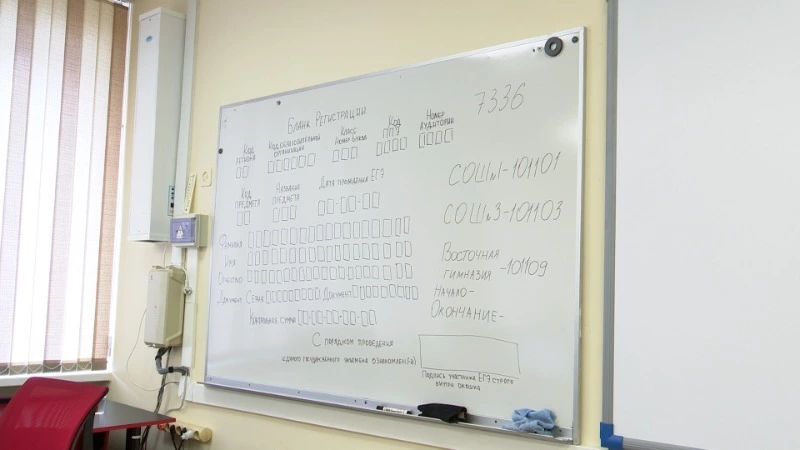 Бланк Регистрации
7336
Код региона
Код образовательной организации
Класс Номер Буква
Код ППЭ
Номер аудитории
Код предмета
Название предмета
Дата проведения ЕГЭ
СОШ№1-101101
СОШ№3-101103
Восточная гимназия -101109
Начало-
Окончание-
Фамилия
Имя
Отчество
Документ Серия Документ
Контрольная сумма
С порядком проведения
единого государственного экзамена ознакомлен(а)
Подпись участника ЕГЭ строго
внутри окошка